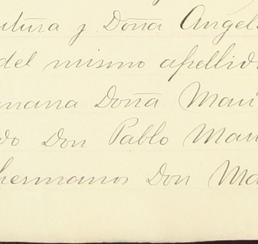 utura y Doña Angel
del mismo apellid
mana Doña Mau
do Don Pablo Mau
hermanos Don Ma